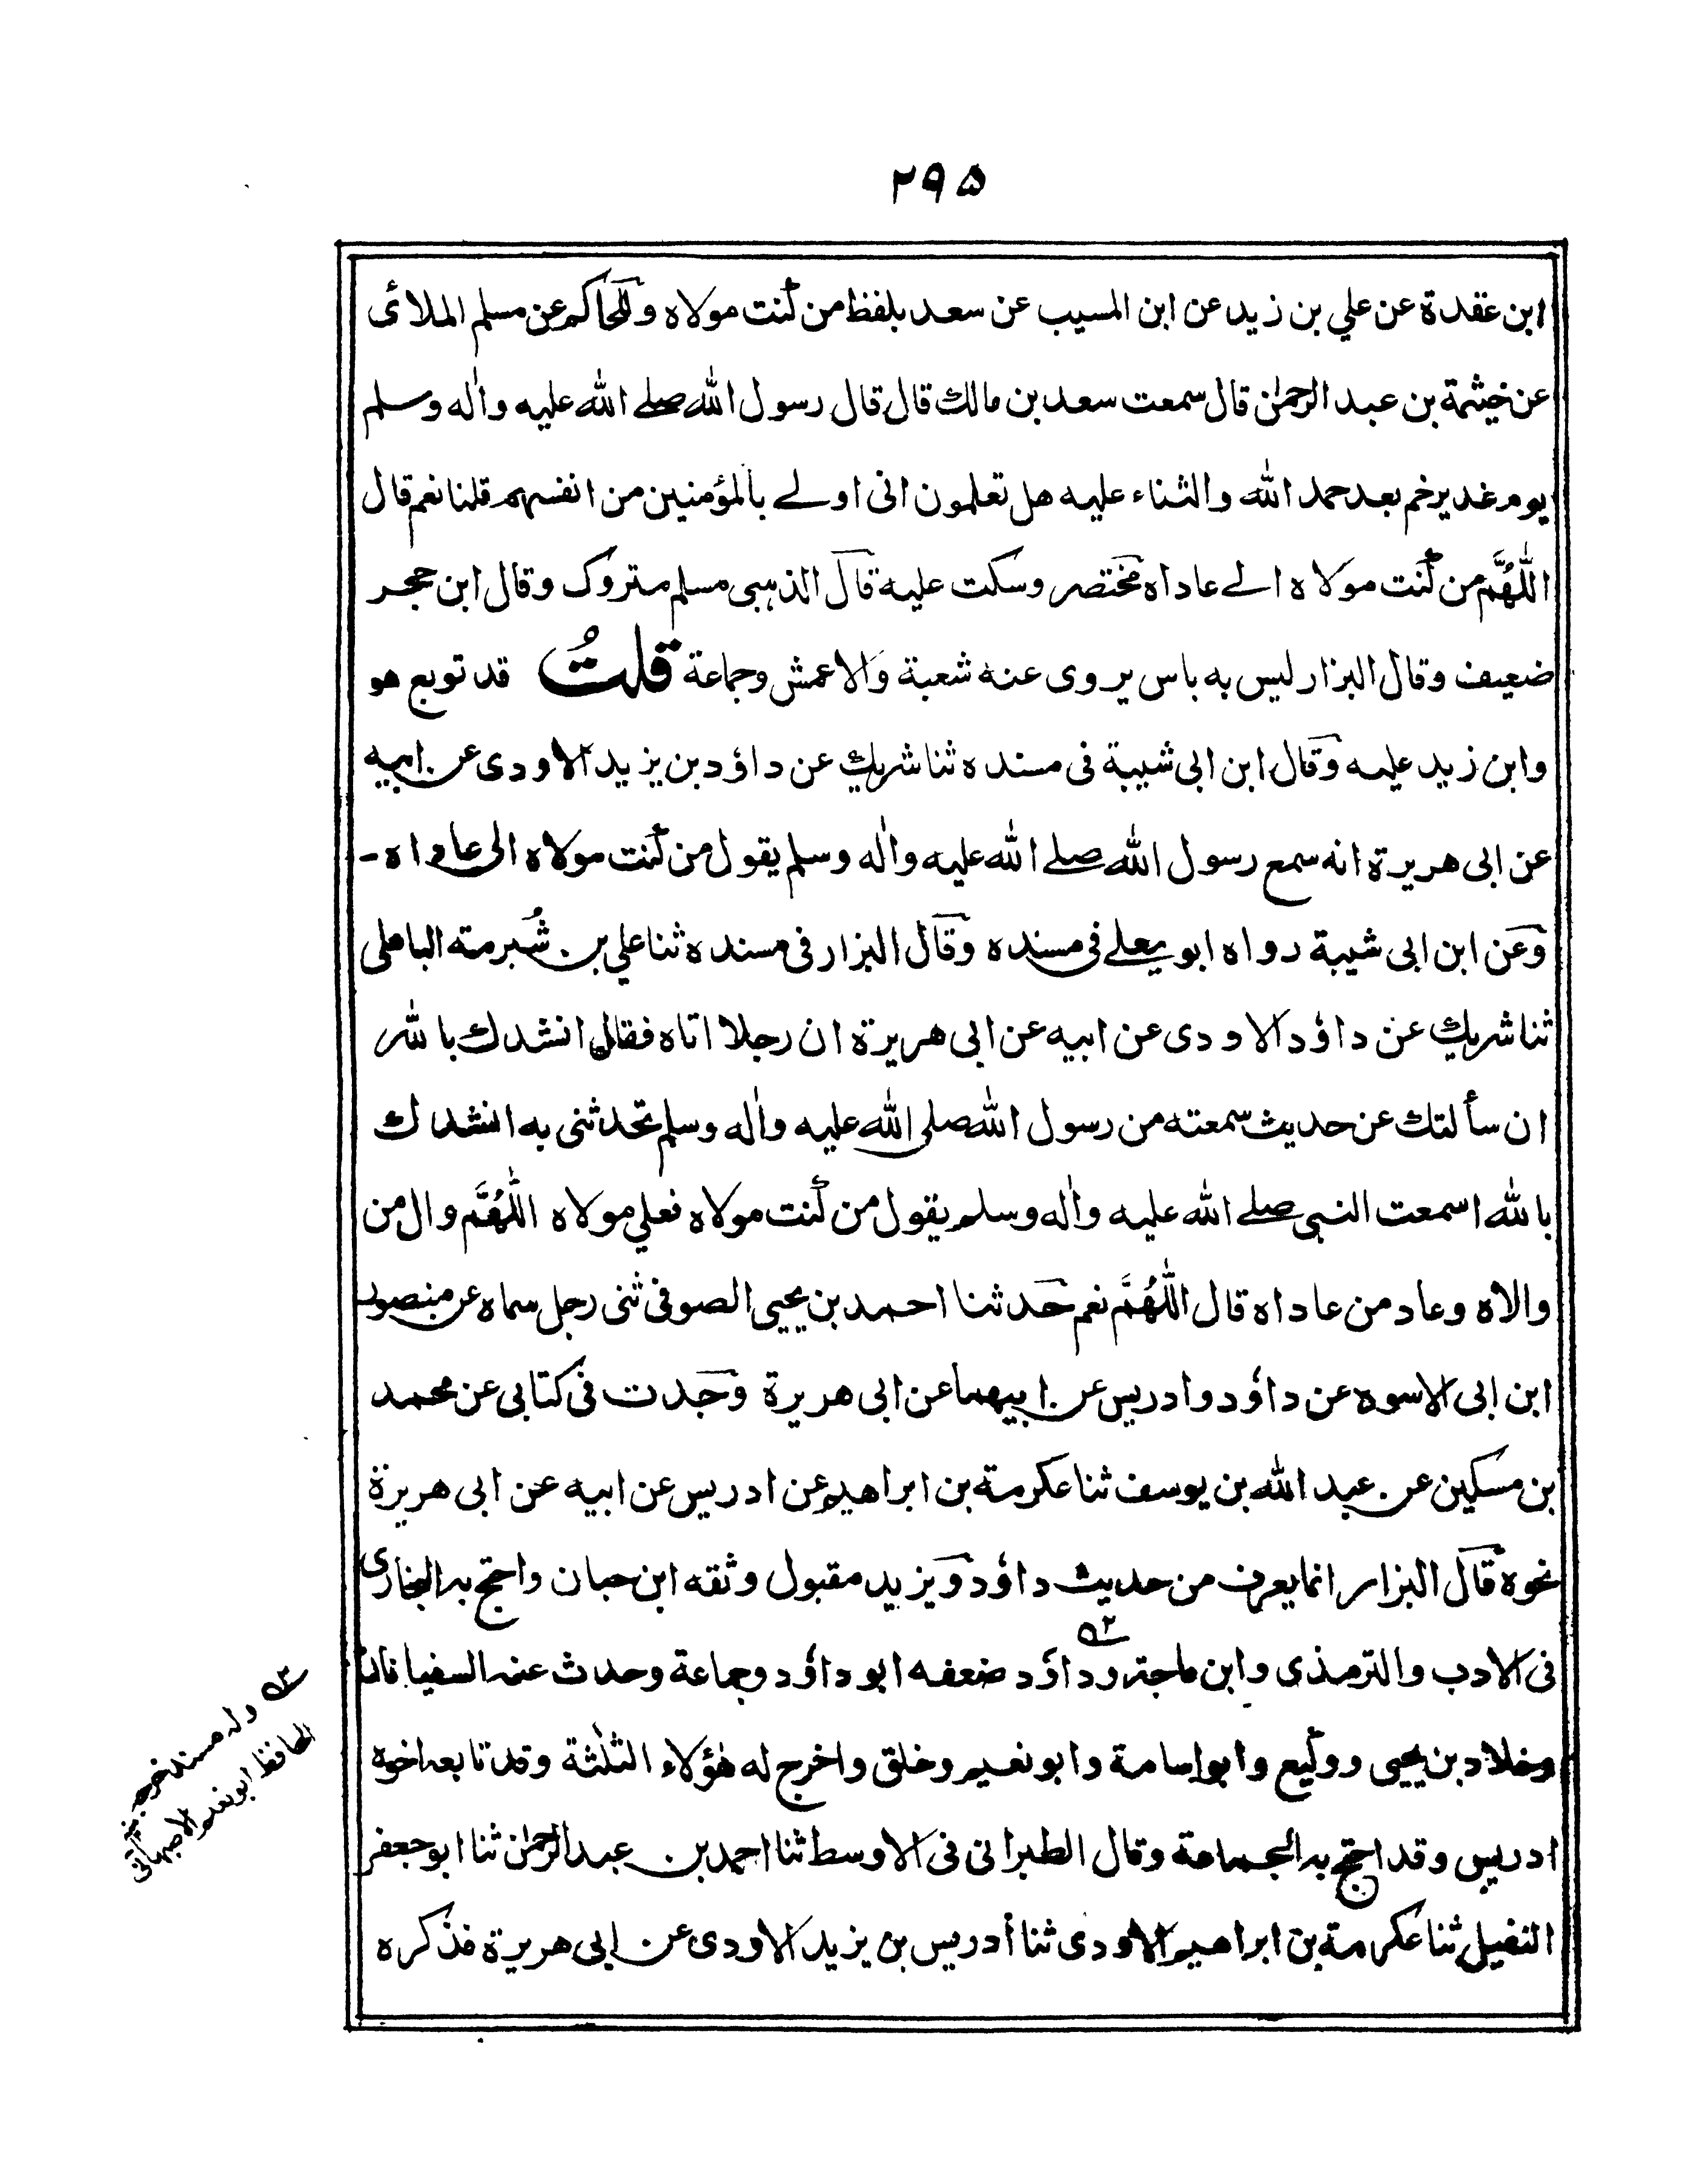 ٢٩٥
ابن عقدة عن علي بن زيد عن ابن المسيب عن سعد بلفظ من كنت مولاه وللحاكم عن مسلم الملائى
عن خيثمة بن عبد الرحمٰن قال سمعت سعد بن مالك قال قال رسول الله صلے الله عليه واٰله وسلم
يوم غدير خم بعد حمد الله والثناء عليه هل تعلمون انى اولے بالمؤمنين من انفسهم قلنا نعم قال
اللّٰهُمَّ من كنت مولاه الے عاداه مختصر وسكت عليه قال الذهبى مسلم متروك وقال ابن حجر
ضعيف وقال البزار ليس به باس يروى عنه شعبة والاعمش وجماعة قلتُ قد توبع هو
وابن زيد عليه وقال ابن ابى شيبة فى مسنده ثنا شريك عن داؤد بن يزيد الاودى عن ابيه
عن ابى هريرة انه سمع رسول الله صلے الله عليه واٰله وسلم يقول من كنت مولاه الى عاداه -
وعن ابن ابى شيبة رواه ابو يعلے فى مسنده وقال البزار فى مسنده ثنا علي بن شُبرمته الباهلى
ثنا شريك عن داؤد الاودى عن ابيه عن ابى هريرة ان رجلا اتاه فقال انشدك بالله
ان سألتك عن حديث سمعته من رسول الله صلى الله عليه واٰله وسلم تحدثنى به انشدك
بالله اسمعت النبى صلے الله عليه واٰله وسلم يقول من كنت مولاه فعلي مولاه اللّٰهُمَّ وال من
والاه وعاد من عاداه قال اللّٰهُمَّ نعم حدثنا احمد بن يحيى الصوفى ثنى رجل سماه عن منصور
ابن ابى الاسوه عن داؤد وادريس عن ابيهما عن ابى هريرة وجدت فى كتابى عن محمد
بن مسكين عن عبد الله بن يوسف ثنا عكرمة بن ابراهيم عن ادريس عن ابيه عن ابى هريرة
نحوه قال البزار انما يعرف من حديث داؤد ويزيد مقبول وثقه ابن حبان واحتج به البخارى
فى الادب والترمذى وابن ماجة وداؤد ضعفه ابو داؤد وجماعة وحدث عنه السفيانان
وخلاد بن يحيى ووكيع وابو اسامة وابو نعيم وخلق واخرج له هٰؤلاء الثلٰثة وقد تابعه اخوه
ادريس وقد احتج به الجماعة وقال الطبرانى فى الاوسط ثنا احمد بن عبد الرحمٰن ثنا ابو جعفر
النفيل ثنا عكرمة بن ابراهيم الاودى ثنا أدريس بن يزيد الاودى عن ابى هريرة فذكره
وله مسند خرجه
الحافظ ابو نعيم الاصبهانى